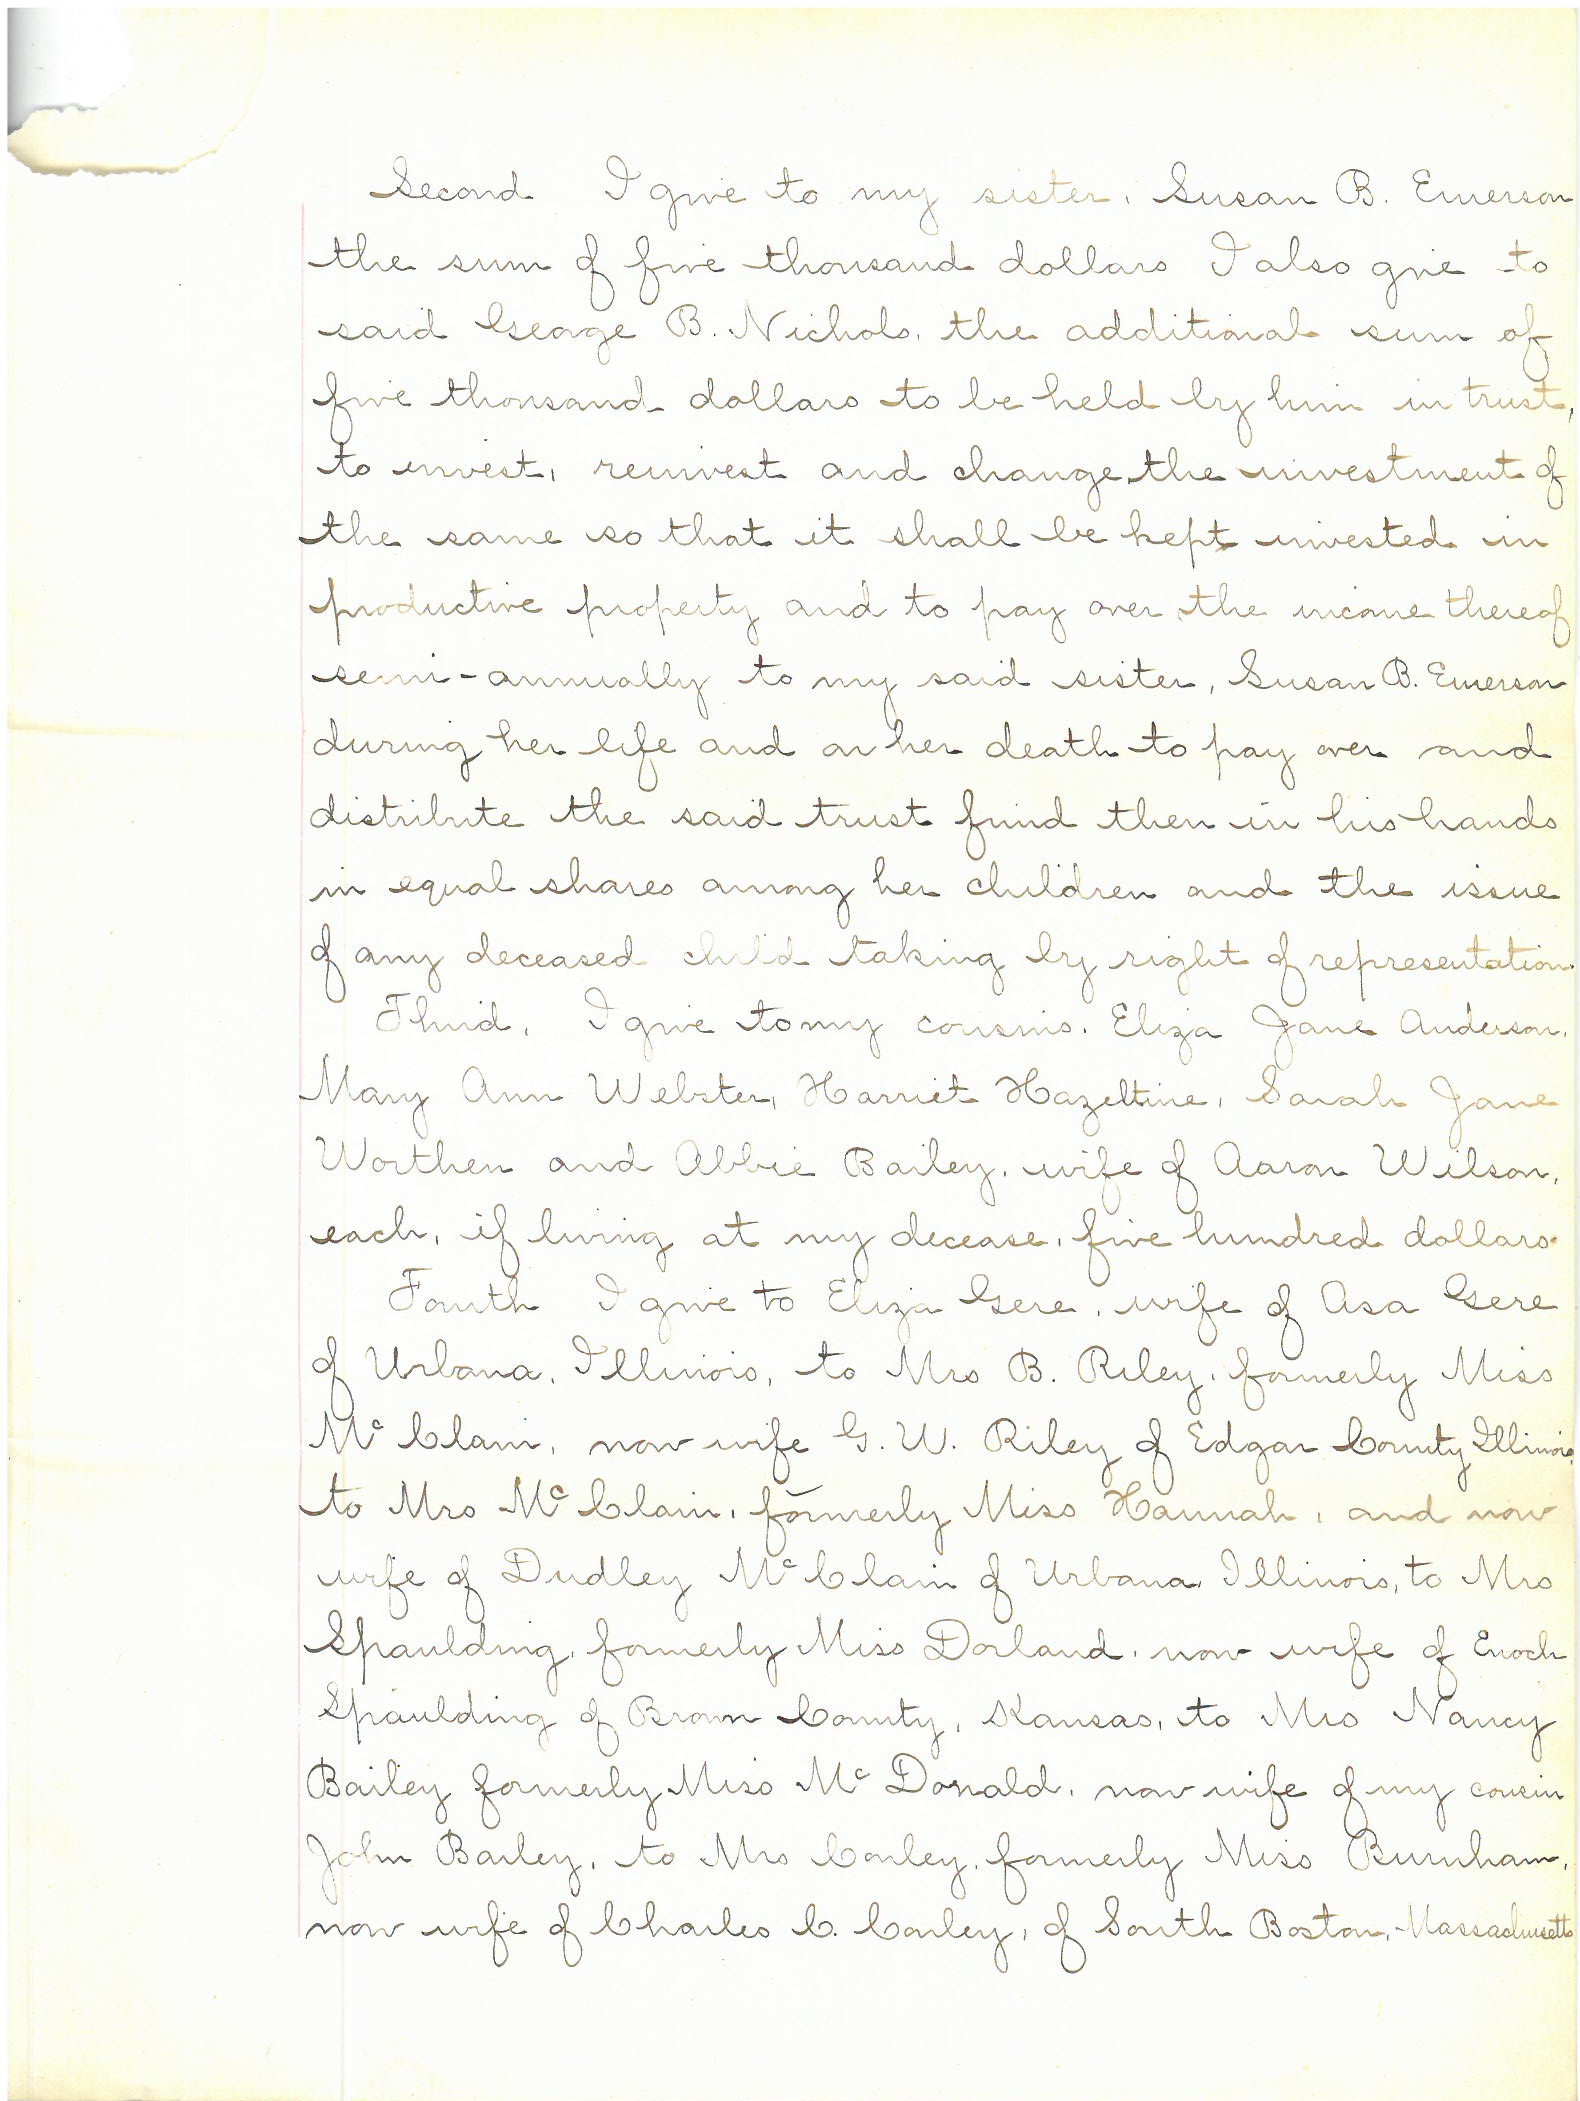 Second I give to my sister, Susan B. Emerson
the sum of five thousand dollars I also give to
said George B. Nichols, the additional sum of
five thousand dollars to be held by him in trust,
to invest, reinvest and change the investment of
the same so that it shall be kept invested in
productive property and to pay over the income thereof
semi-annually to my said sister, Susan B. Emerson
during her life and on her death to pay over and
distribute the said trust fund then in his hands
in equal shares among her children and the issue
of any deceased child taking by right of representation.
Third, I give to my cousins. Eliza Jane Anderson,
Mary Ann Webster, Harriet Hazeltine, Sarah Jane
Worthen and Abbie Bailey, wife of Aaron Wilson,
each, if living at my decease, five hundred dollars.
Fourth I give to Eliza Gere, wife of Asa Gere
of Urbana, Illinois, to Mrs B. Riley, formerly Miss
McClain, now wife G. W. Riley of Edgar County Illinois,
to Mrs McClain, formerly Miss Hannah, and now
wife of Dudley McClain of Urbana, Illinois, to Mrs
Spaulding, formerly Miss Dorland, now wife of Enoch
Spaulding of Brown County, Kansas, to Mrs Nancy
Bailey formerly Miss McDonald, now wife of my cousin
John Bailey, to Mrs Conley, formerly Miss Burnham,
now wife of Charles C. Conley, of South Boston, Massachusetts